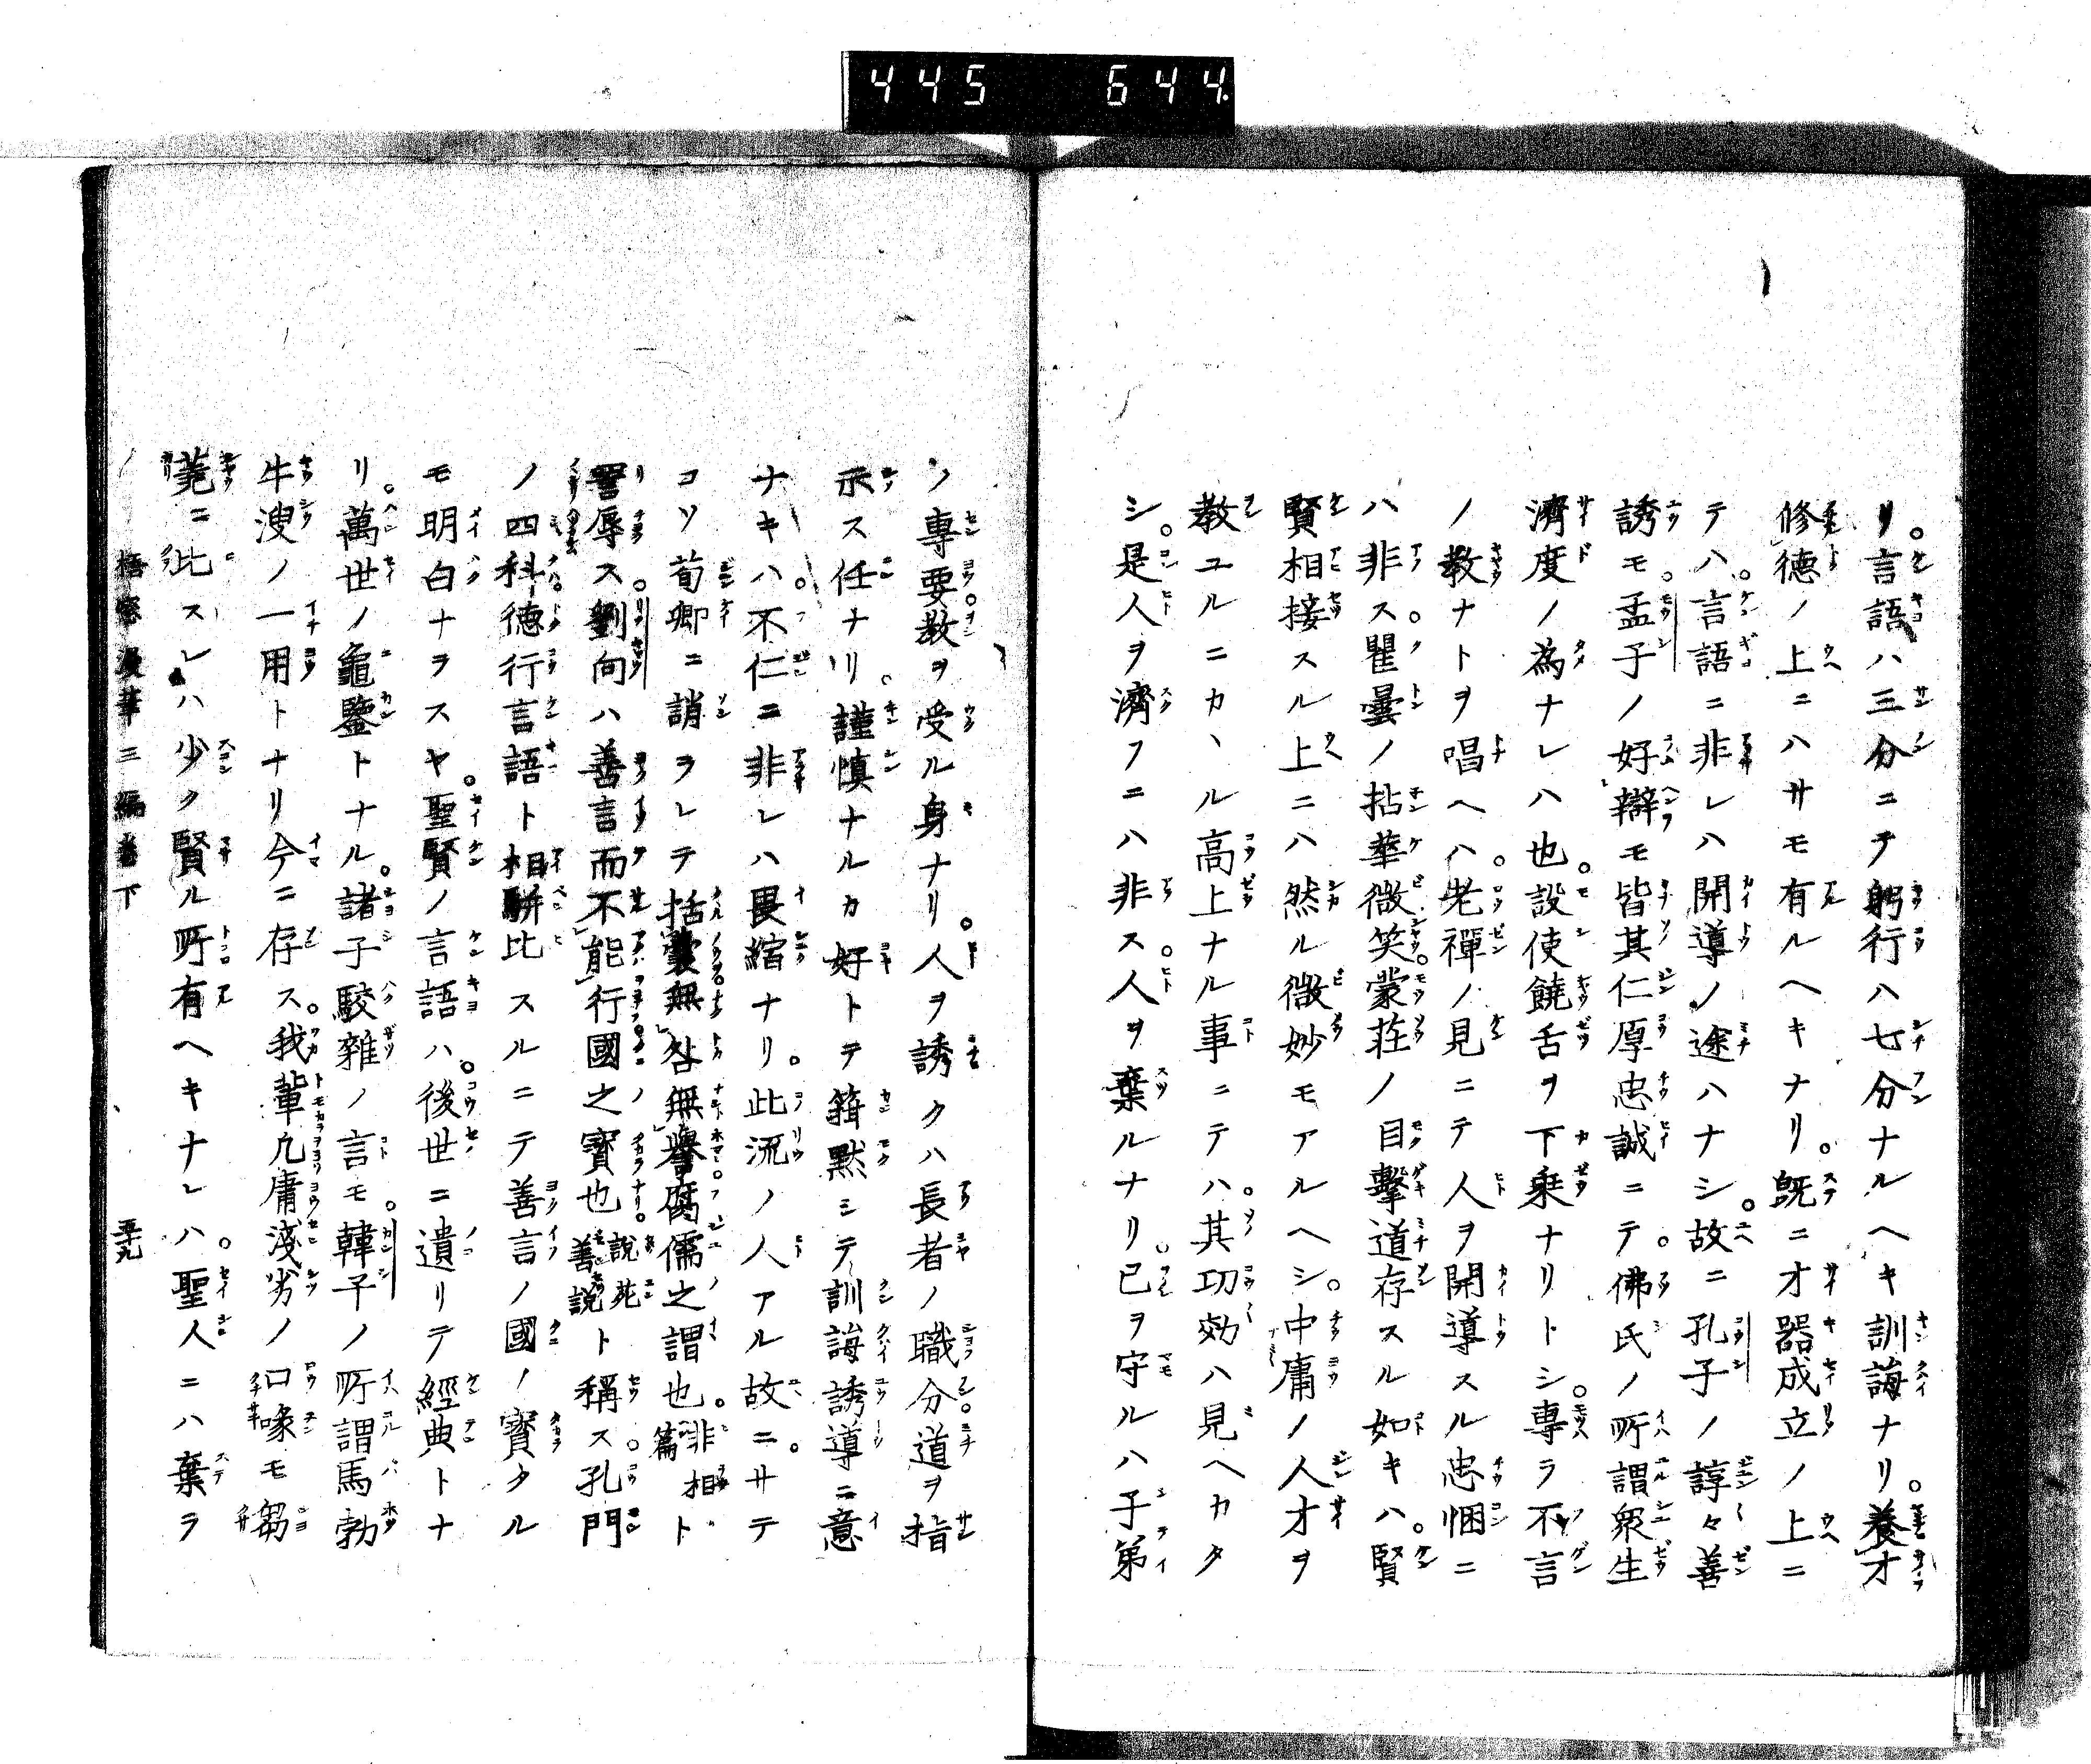 445 644
リ。言語ハ三分ニテ躬行ハ七分ナルヘキ訓誨ナリ。養才
修德ノ上ニハサモ有ルヘキナリ。既ニ才器成立ノ上ニ
テハ。言語ニ非レハ開導ノ途ハナシ。故ニ孔子ノ諄々善
誘モ。孟子ノ好辯モ皆其仁厚忠誠ニテ。佛氏ノ所謂衆生
濟度ノ為ナレハ也。設使饒舌ヲ下乗ナリトシ。專ラ不言
ノ教ナトヲ唱ヘハ。老禪ノ見ニテ人ヲ開導スル忠悃ニ
ハ非ス。瞿曇ノ拈華微笑。蒙莊ノ目擊道存スル如キハ。賢
賢相接スル上ニハ然ル微妙モアルヘシ。中庸ノ人才ヲ
教ユルニカヽル高上ナル事ニテハ。其功效ハ見ヘカタ
シ。是人ヲ濟フニハ非ス。人ヲ棄ルナリ。已ヲ守ルハ子弟
ノ專要。教ヲ受ル身ナリ。人ヲ誘クハ長者ノ職分。道ヲ指
示ス任ナリ。謹慎ナルカ好トテ箝默シテ訓誨誘導ニ意
ナキハ。不仁ニ非レハ畏縮ナリ。此流ノ人アル故ニ。サテ
コソ荀卿ニ誚ヲレテ括囊無咎無譽腐儒之謂也。非相篇ト
詈辱ス。劉向ハ善言而不能行國之寶也。説苑善説ト稱ス。孔門
ノ四科。德行言語ト相駢比スルニテ善言ノ國ノ寶タル
モ明白ナヲスヤ。聖賢ノ言語ハ。後世ニ遺リテ經典トナ
リ。萬世ノ龜鑒トナル。諸子駮雜ノ言モ。韓子ノ所謂馬勃
牛溲ノ一用トナリ今ニ存ス。我輩凡庸淺劣ノ口喙モ芻
蕘ニ比スレハ少ク賢ル所有ヘキナレハ。聖人ニハ棄ラ
梧窓漫筆三編卷下 五十九